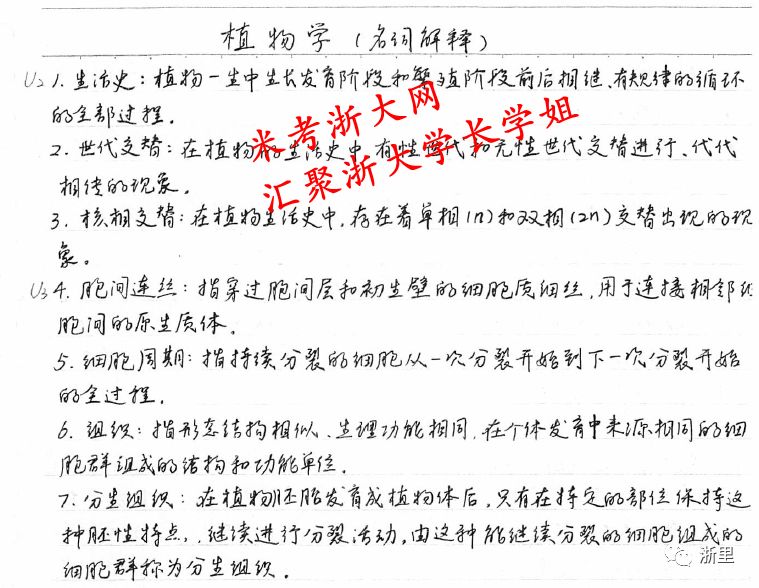 植物学（名词解释）
U2 1. 生活史：植物一生中生长发育阶段和繁殖阶段前后相继、有规律的循环
的全部过程。
2. 世代交替：在植物的生活史中，有性世代和无性世代交替进行、代代
相传的现象。
3. 核相交替：在植物生活史中，存在着单相(n)和双相(2n)交替出现的现
象。
U3 4. 胞间连丝：指穿过胞间层和初生壁的细胞质细丝，用于连接相邻细
胞间的原生质体。
5. 细胞周期：指持续分裂的细胞从一次分裂开始到下一次分裂开始
的全过程。
6. 组织：指形态结构相似、生理功能相同，在个体发育中来源相同的细
胞群组成的结构和功能单位。
7. 分生组织：在植物胚胎发育成植物体后，只有在特定的部位保持这
种胚性特点，继续进行分裂活动，由这种能继续分裂的细胞组成的
细胞群称为分生组织。
米考浙大网
汇聚浙大学长学姐
浙里